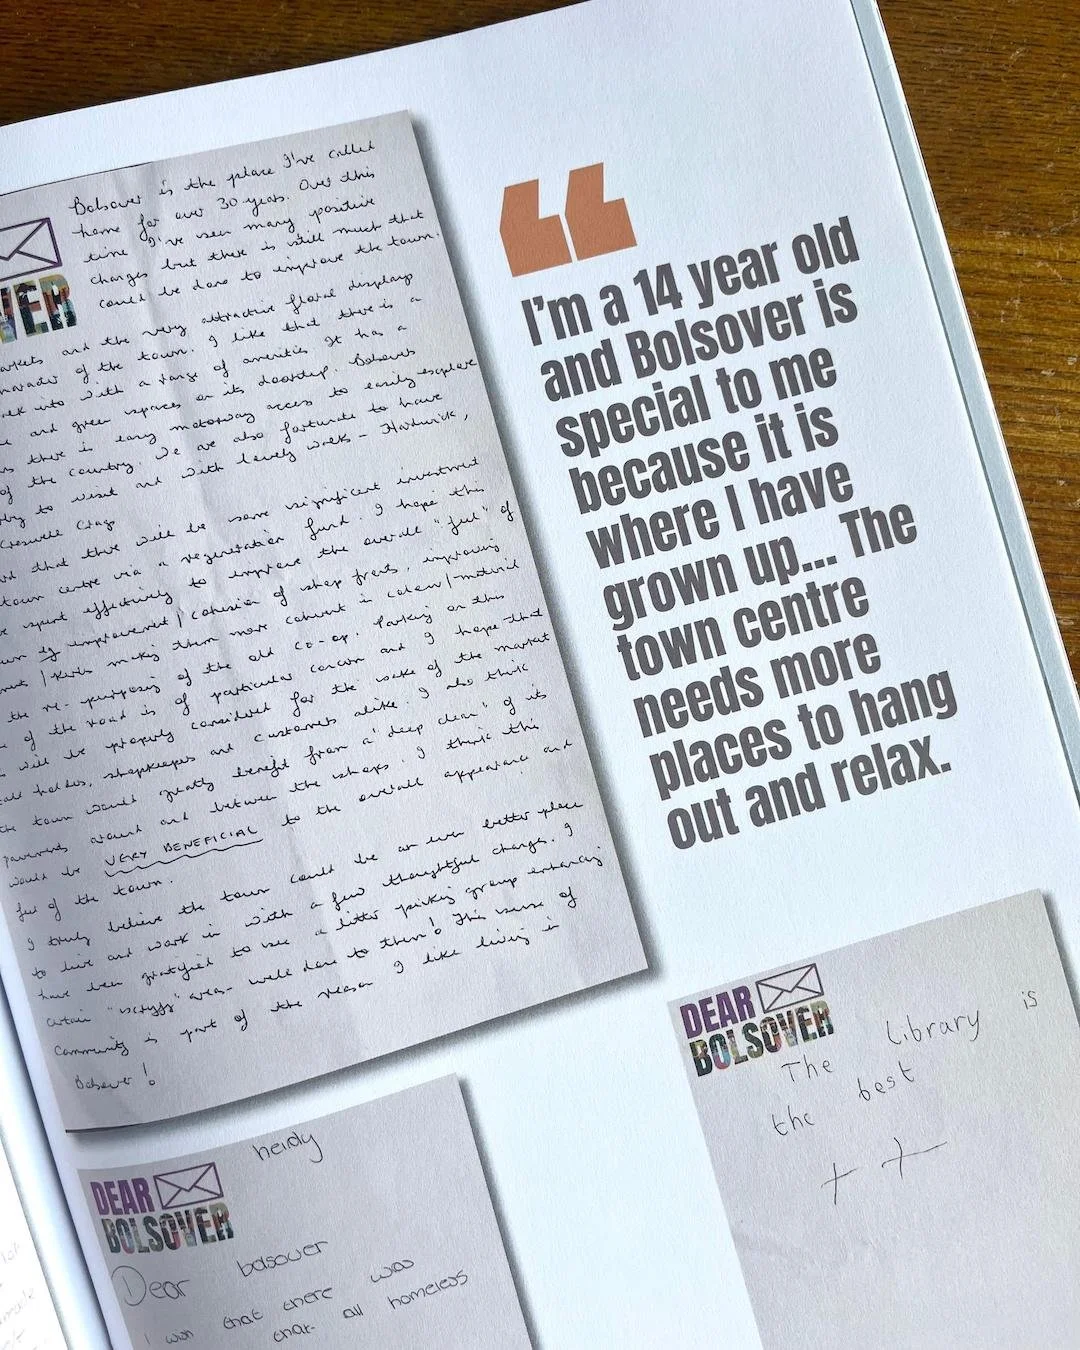 Bolsover is the place I've called
home for over 30 years. Over this
time I've seen many positive
changes but there is still much that
could be done to improve the town.
and the very attractive floral displays
of the town. I like that there is a
into with a range of amenities. It has a
and green spaces on its doorstep. Bolsover's
there is easy motorway access to easily explore
of the country. We are also fortunate to have
to visit and with lovely walks - Hardwick,
Creswell Crags
that there will be some significant investment
town centre via a regeneration fund. I hope this
spent effectively to improve the overall "feel" of
improvement / cohesion of shop fronts, improving
making them more coherent in colour/material
the re-purposing of the old co-op. Parking on this
of the road is of particular concern and I hope that
will be properly considered for the sake of the market
holders, shopkeepers and customers alike. I also think
the town would greatly benefit from a 'deep clean' of its
pavements around and between the shops. I think this
would be VERY BENEFICIAL to the overall appearance and
feel of the town.
I truly believe the town could be an even better place
to live and work in with a few thoughtful changes. I
have been gratified to see a litter picking group enhancing
certain "scruffy" areas - well done to them! This sense of
community is part of the reason I like living in
Bolsover!
I'm a 14 year old
and Bolsover is
special to me
because it is
where I have
grown up... The
town centre
needs more
places to hang
out and relax.
DEAR
BOLSOVER
The Library is
the best
heidy
DEAR
BOLSOVER
Dear bolsover
I won that there was
that all homeless